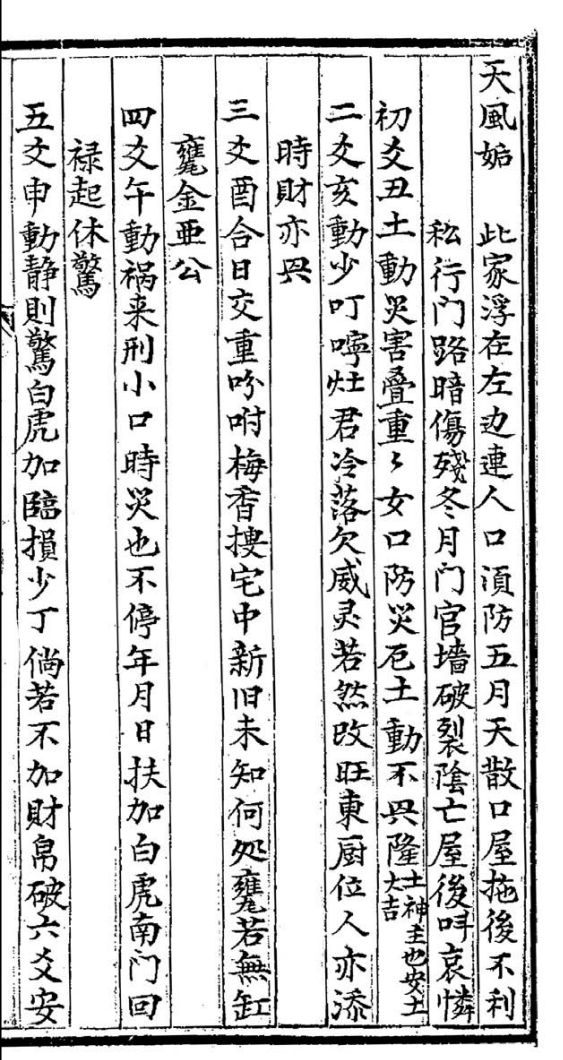 天風姤　此家浮在左边連人口湏防五月天散口屋拖後不利
私行门路暗傷殘冬月门官墙破裂陰亡屋後呌哀憐
初爻丑土動災害叠重〻女口防災厄土動不兴隆土神主也安土大吉
二爻亥動少叮嚀灶君冷落欠威灵若然改旺東厨位人亦添
時財亦兴
三爻酉合日交重吩咐梅香摟宅中新旧未知何处甕若無缸
甕金亜公
四爻午動禍来刑小口時災也不停年月日扶加白虎南门回
禄起休驚
五爻申動静則驚白虎加臨損少丁倘若不加財帛破六爻安